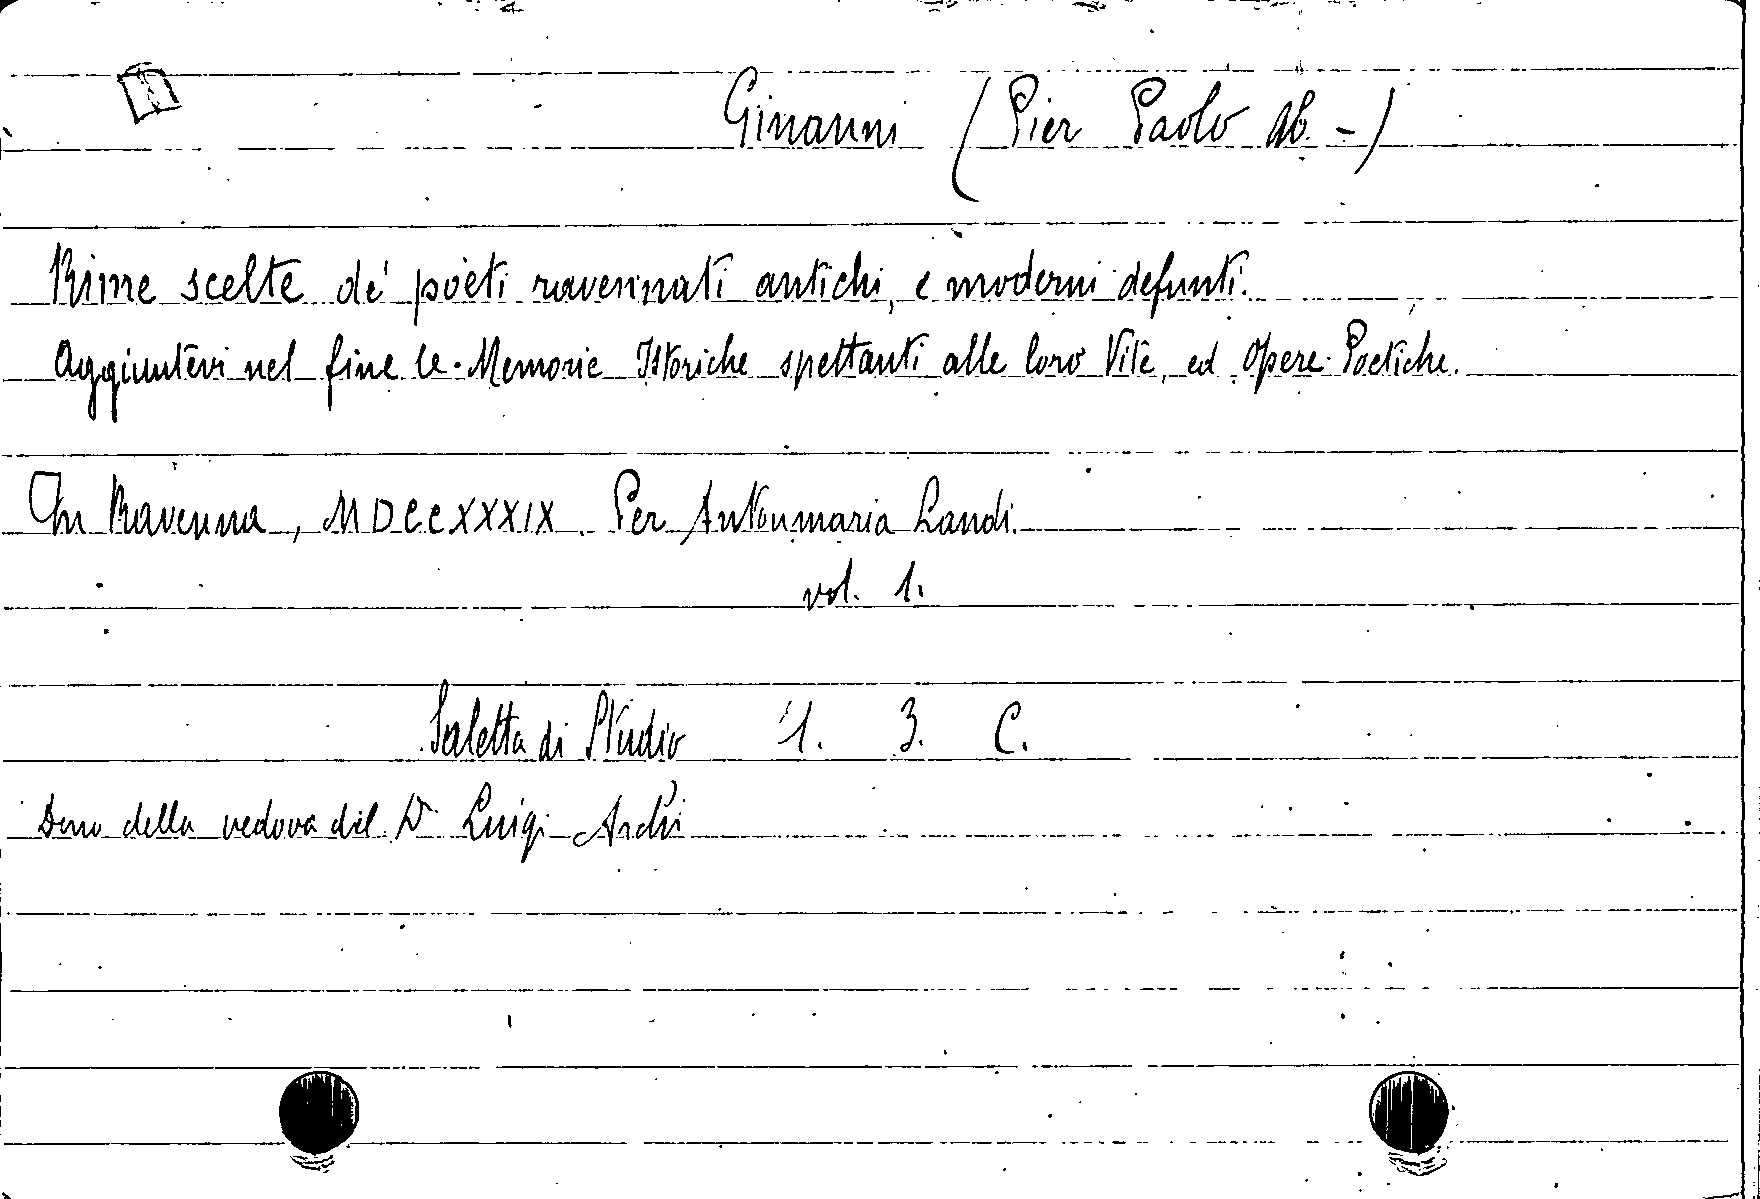 Ginanni (Pier Paolo Ab. -)
Rime scelte de' poeti ravennati antichi, e moderni defunti.
Aggiuntevi nel fine le Memorie Istoriche spettanti alle loro Vite, ed Opere Poetiche.
In Ravenna, MDCCXXXIX. Per Antonmaria Landi.
vol. 1.
Saletta di Studio 1. 3. C.
Dono della vedova del Dr Luigi Archi